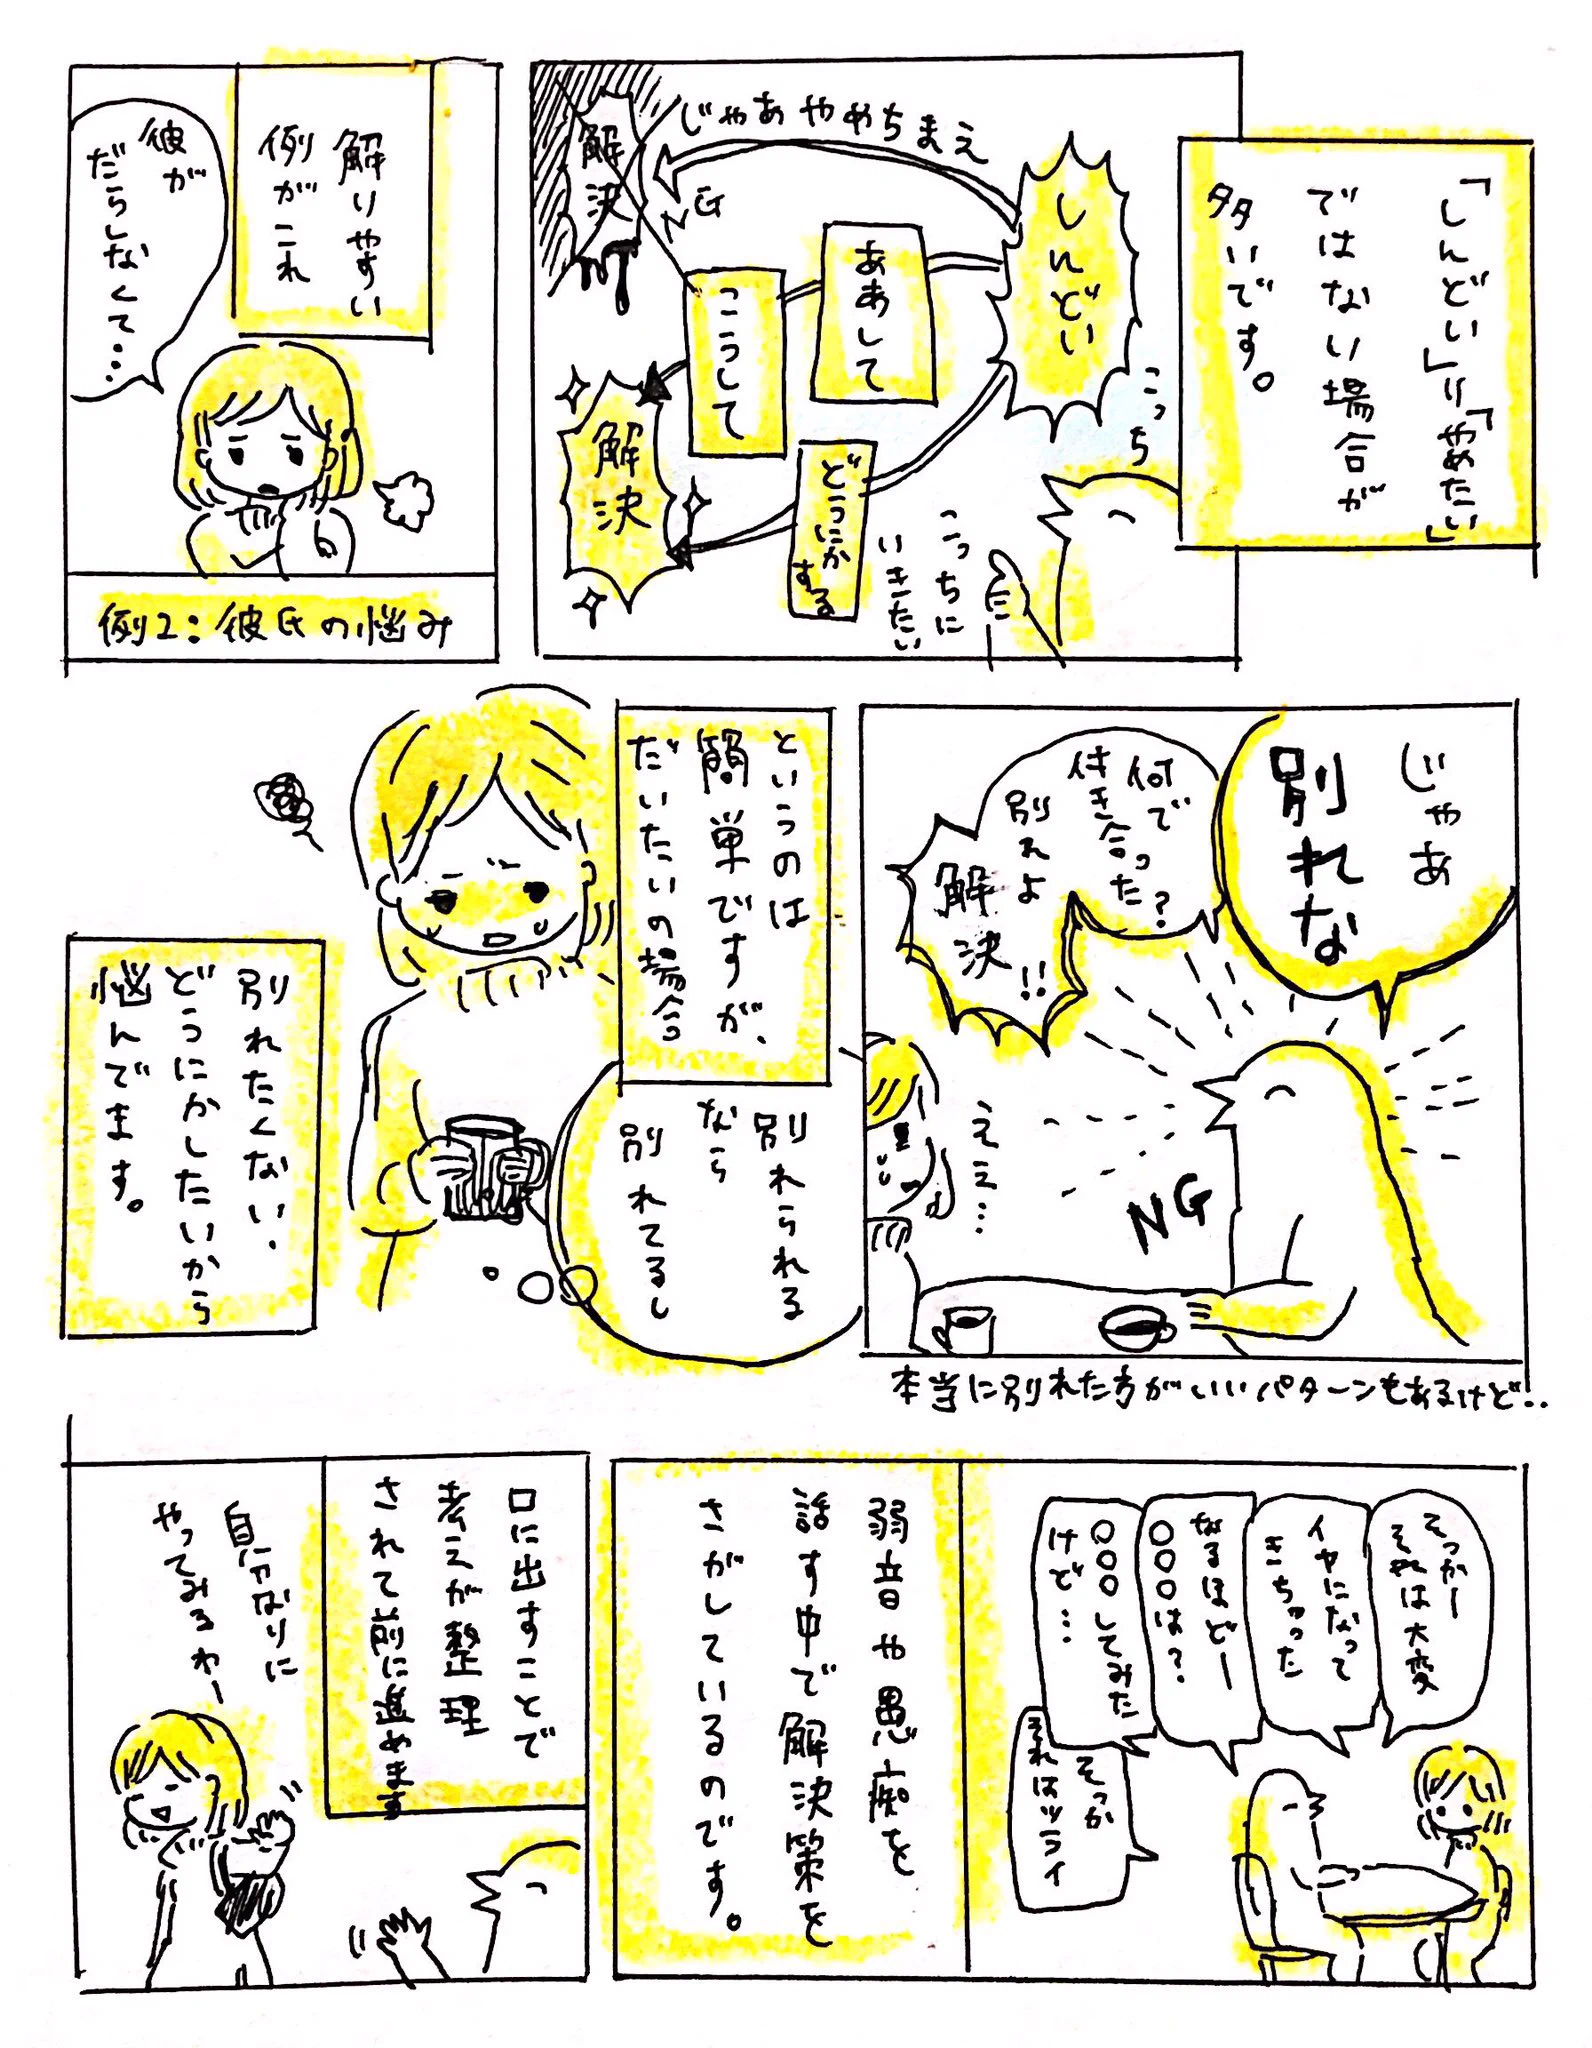 「しんどい」=「やめたい」
ではない場合が
多いです。
しんどい
じゃあやめちまえ
NG
解決
ああして
こうして
どうにかする
解決
こっち
こっちに
いきたい
解りやすい
例がこれ
彼が
だらしなくて…
例2:彼氏の悩み
じゃあ
別れな
何で
付き合った?
別れよ
解決!!
ええ…
NG
本当に別れた方がいいパターンもあるけど…
というのは
簡単ですが、
だいたいの場合
別れられる
なら
別れてるし
別れたくない、
どうにかしたいから
悩んでます。
そっかー
それは大変
イヤになって
きちゃった
なるほどー
〇〇〇は?
〇〇〇してみた
けど…
そっか
それはツライ
弱音や愚痴を
話す中で解決策を
さがしているのです。
口に出すことで
考えが整理
されて前に進めます
自分なりに
やってみるわー